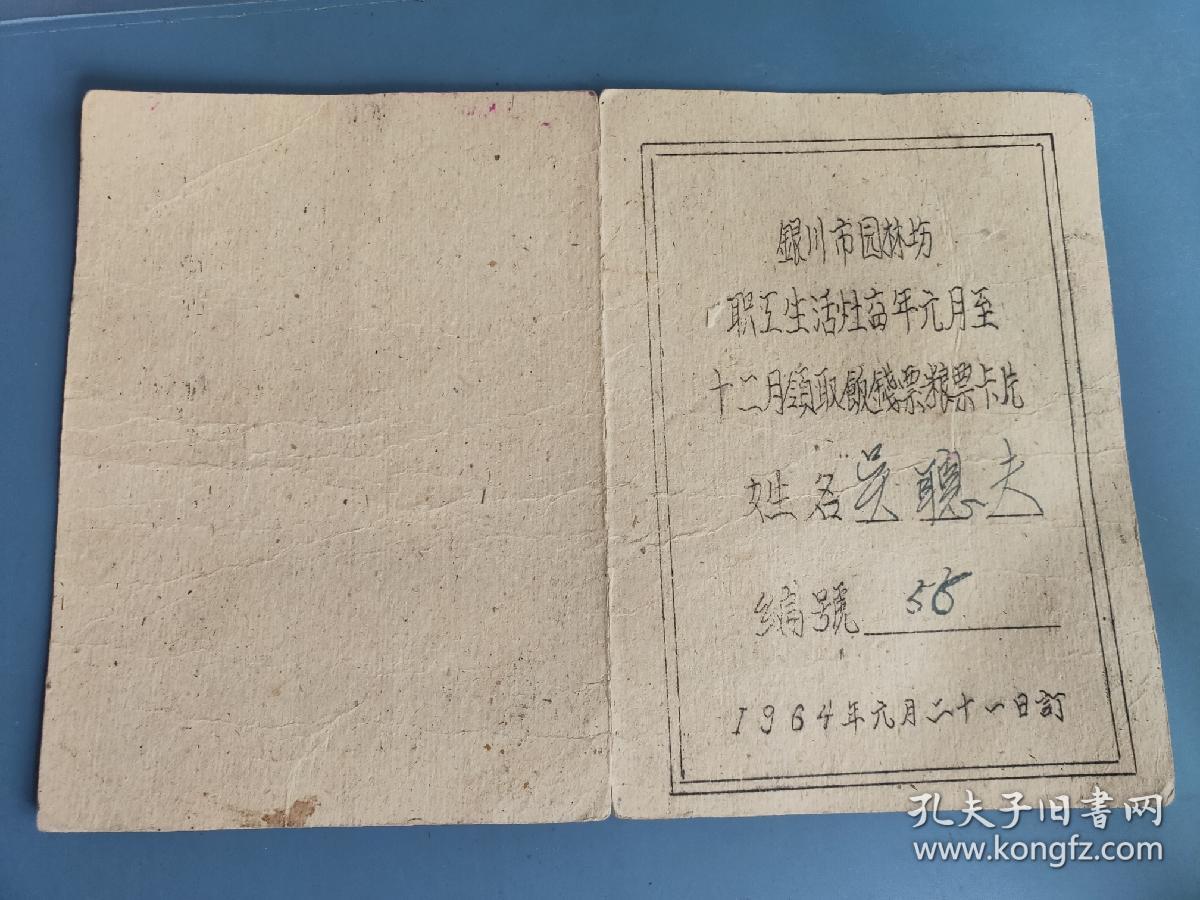 銀川市园林场
职工生活灶六四年元月至
十二月領取飯錢票粮票卡片
姓名吴聰夫
编號 56
1964年元月二十一日訂
孔夫子旧书网
www.kongfz.com